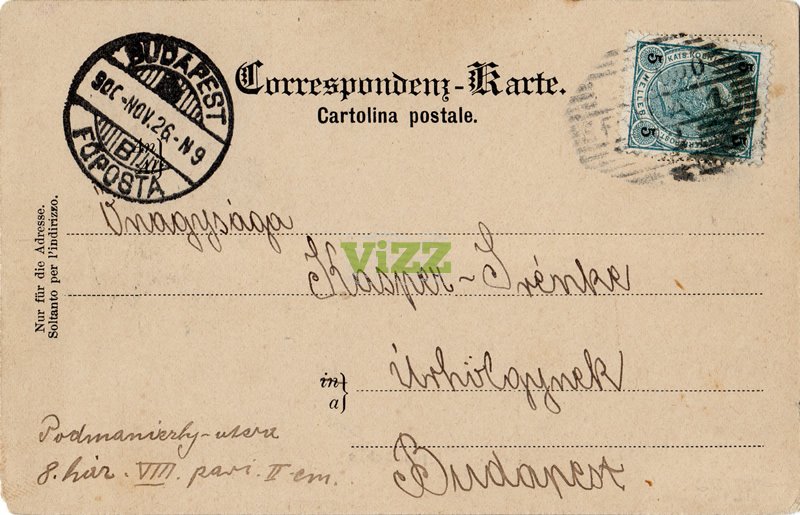 Correspondenz-Karte.
Cartolina postale.
BUDAPEST
900-NOV.26-N9
FŐPOSTA
5 HELLER 5
Nur für die Adresse.
Soltanto per l'indirizzo.
An
Önagysága
ViZZ
Kásper-Irénke
in
a
Úrhölgynek
Podmaniczky-utcza
8. ház. VIII. part. II-em.
Budapest.